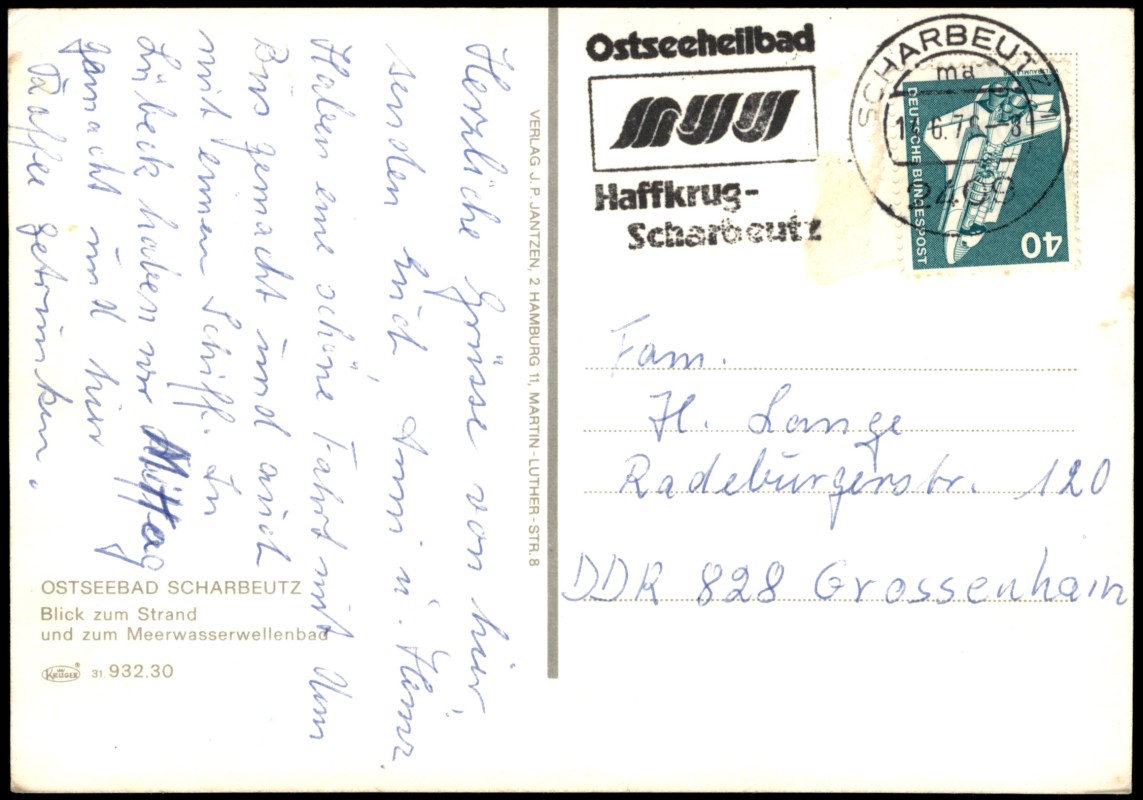 Herzliche Grüsse von hier
senden Euch Anni u. Heinz.
Haben eine schöne Fahrt mit dem
Bus gemacht und auch
mit einem Schiff. In
Lübeck haben wir Mittag
gemacht und hier
Kaffee getrunken.
OSTSEEBAD SCHARBEUTZ
Blick zum Strand
und zum Meerwasserwellenbad
KRÜGER 31. 932.30
VERLAG J. P. JANTZEN, 2 HAMBURG 11, MARTIN-LUTHER-STR. 8
Ostseeheilbad
Haffkrug-
Scharbeutz
SCHARBEUTZ 1
ma
.6.76-8
2409
DEUTSCHE BUNDESPOST
40
Fam.
H. Lange
Radeburgerstr. 120
DDR 828 Grossenhain